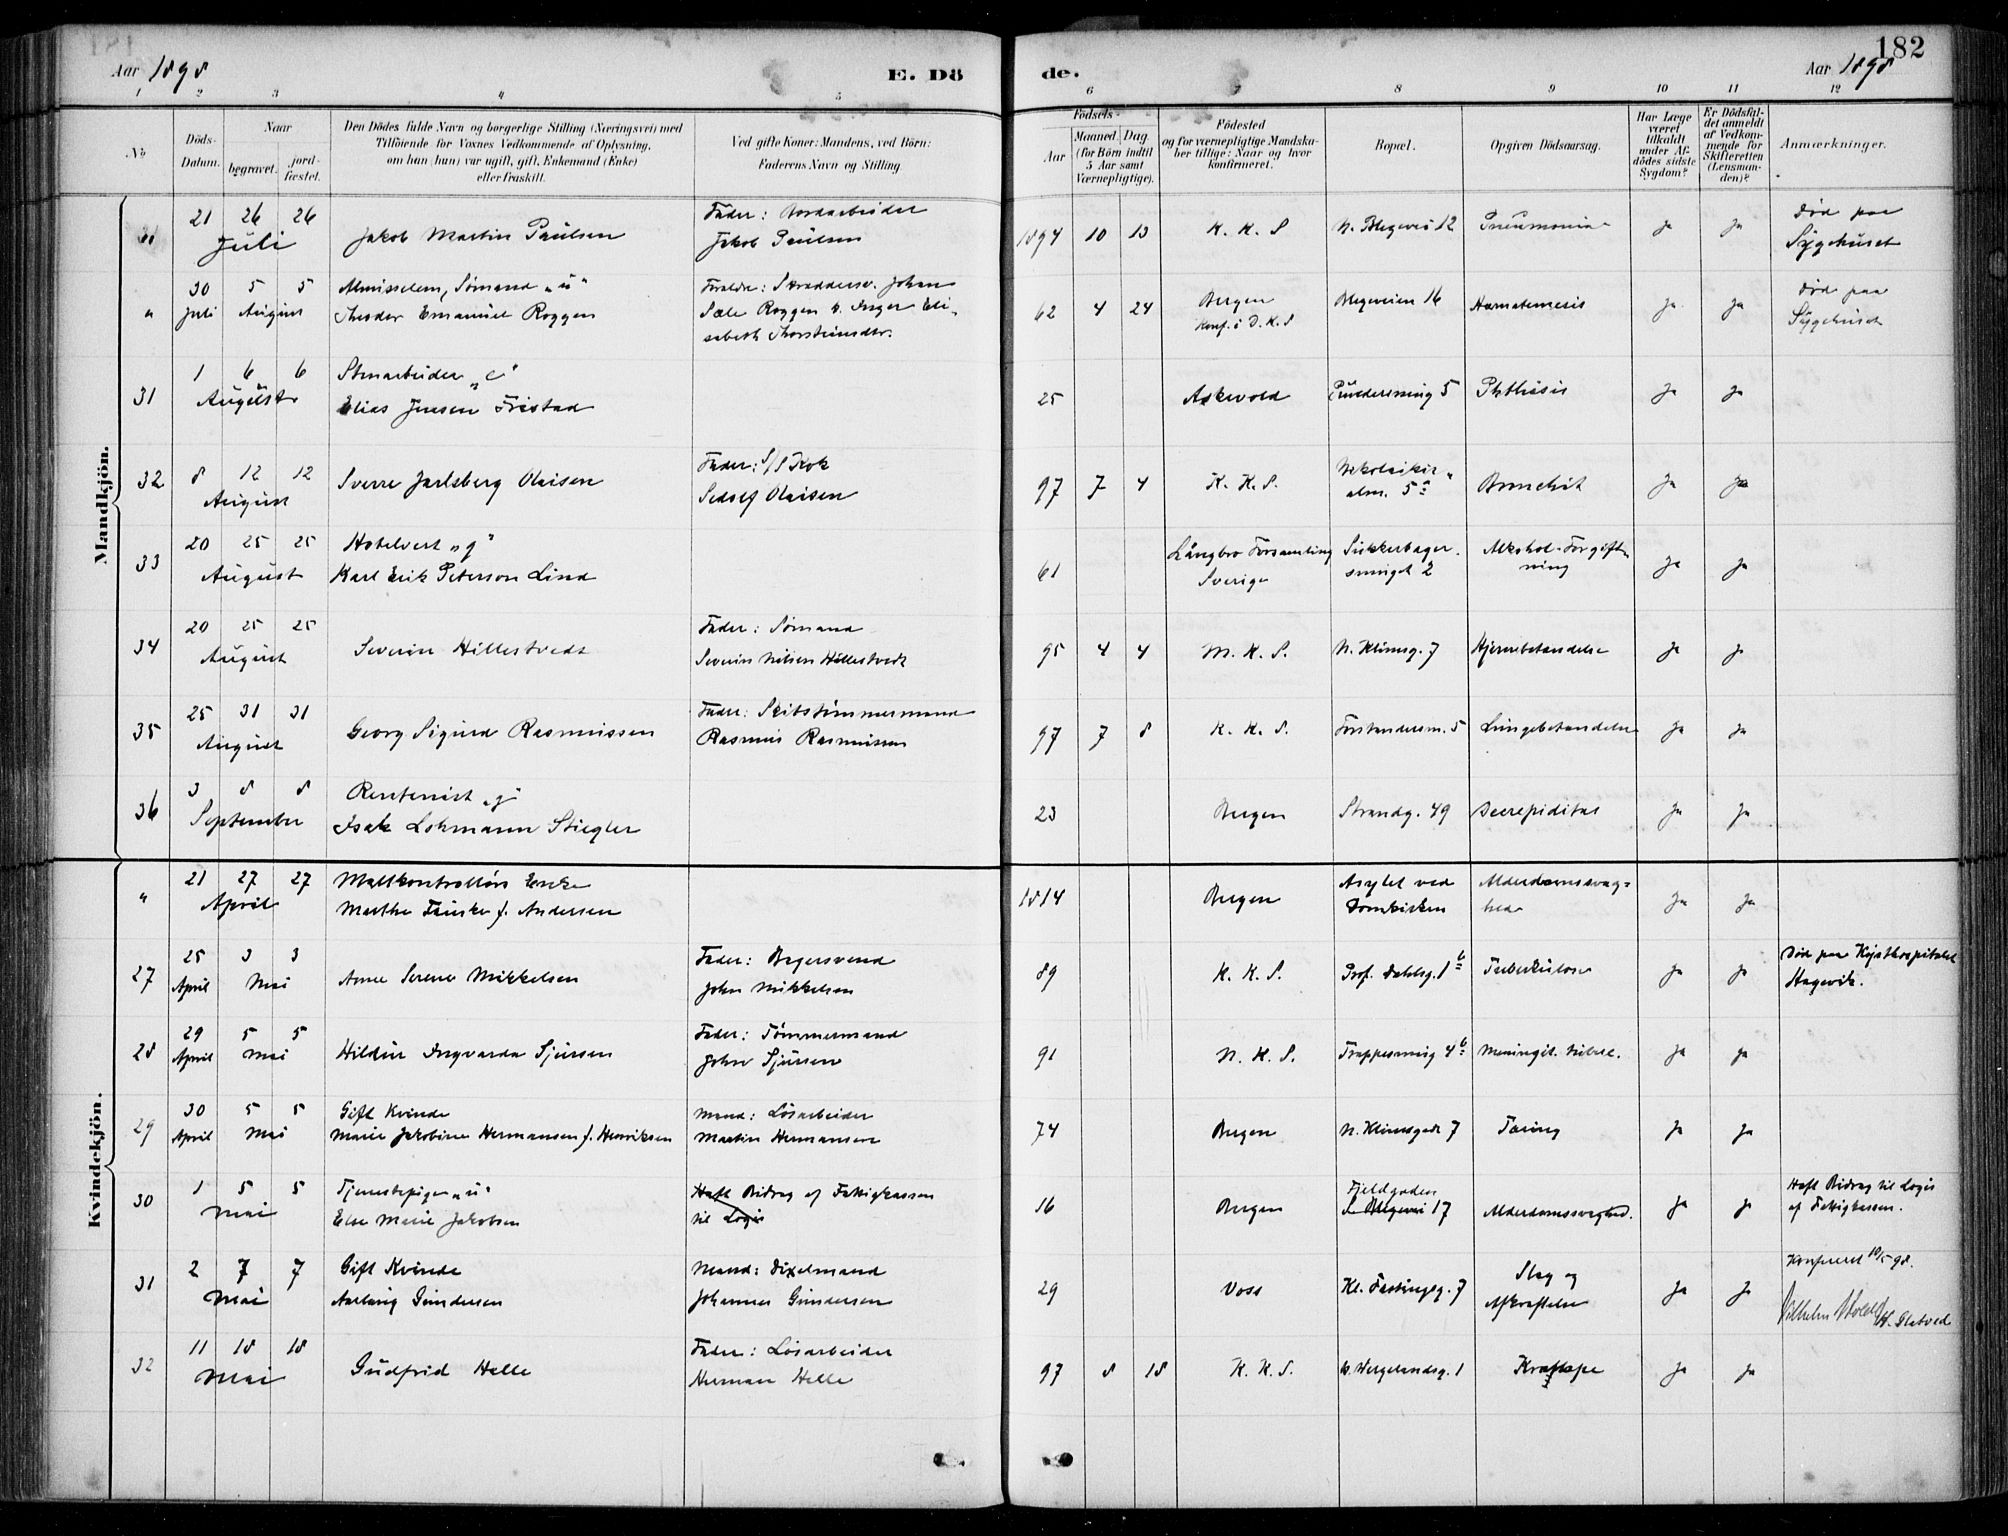 182
Aar 1898
E. Dö
de.
Aar 1898
1 2 3 4 5 6 7 8 9 10 11 12
No
Döds-Datum.
Naar
begravet.
jord-fæstet.
Den Dödes fulde Navn og borgerlige Stilling (Næringsvei) med
Tilföiende for Voxnes Vedkommende af Oplysning,
om han (hun) var ugift, gift, Enkemand (Enke)
eller fraskilt.
Ved gifte Koner: Mandens, ved Börn:
Faderens Navn og Stilling.
Födsels-
Aar
Maaned
Dag
(for Börn indtil
5 Aar samt
Værnepligtige).
Födested
og for værnepligtige Mandska-
ber tillige: Naar og hvor
konfirmeret.
Bopæl.
Opgiven Dödsaarsag.
Har Læge
været
tilkaldt
under Af-
dödes sidste
Sygdom?
Er Dödsfal-
det anmeldt
af Vedkom-
mende for
Skifteretten
(Lensman-
den)?
Anmærkninger.
Mandkjön.
21 26 26
Juli
Jakob Martin Paulsen
Fader: Jordarbeider
Jakob Paulsen
1894 10 13
K. K. S
N. Blegevei 12
Pneumonia
Ja
Ja
Død paa
Sygehuset
"
30 5 5
Juli August
Almisselem, Sømand „u"
Theodor Emanuel Roggen
Forældre: Skradders. Johan
Sæle Roggen o. Inger Eli-
sabeth Thorsteinsdtr.
62 4 24
Bergen
Konf. i D. K. S
Blegeveien 16
Hæmatemesis
Ja
Ja
Død paa
Sygehuset
31
1 6 6
August
Stenarbeider „e"
Elias Jensen Fristad
25
Askevold
5
Phthisis
Ja
Ja
32
8 12 12
August
Sverre Jarlsberg Olaisen
Fader: S/S Kok
Sedolf Olaisen
97 7 4
K. K. S.
Nikolaikir-
alm. 5a
Bronchit
Ja
Ja
33
20 25 25
August
Hotelvert „g"
Karl Erik Peterson Lind
61
Långbro Forsamling
Sverige
Sukkerhager-
smuget 2
Alkohol-Forgift-
ning
Ja
Ja
34
20 25 25
August
Severin Hillestvedt
Fader: Sømand
Severin Nilsen Hillestvedt
95 4 4
M. K. S.
N. Klinesg. 7
Hjernebetændelse
Ja
Ja
35
25 31 31
August
Georg Sigurd Rasmussen
Fader: Skibstømmermand
Rasmus Rasmussen
97 7 8
K. K. S.
Forstandersm. 5
Lungebetændelse
Ja
Ja
36
3 8 8
September
Rentenist „g"
Isak Lohmann Stiegler
23
Bergen
Strandg. 49
Decrepiditas
Ja
Ja
Kvindekjön.
"
21 27 27
April
Maltkontrollørs Enke
Marthe Finske f. Andersen
1814
Bergen
Asylet ved
Domkirken
Alderdomssvag-
hed
Ja
Ja
27
25 3 3
April Mai
Anne Serene Mikkelsen
Fader: Bagersvend
John Mikkelsen
89
K. K. S.
Prof. Dahlsg. 1b
Tuberkulose
Ja
Ja
Død paa Kysthospitalet
Hagevik.
28
29 5 5
April Mai
Hildur Ingvarda Sjursen
Fader: Tømmermand
John Sjursen
91
N. K. S.
Trappesmug 4b
Meningit. tuberc.
Ja
Ja
29
30 5 5
April Mai
Gift Kvinde
Marie Jakobine Hermansen f. Henriksen
Mand: Løsarbeider
Martin Hermansen
74
Bergen
N. Klinesgade 7
Tæring
Ja
Ja
30
1 5 5
Mai
Tjenestepige „u"
Else Marie Jakobsen
Havt Bidrag af Fattigkassen
til Logis
16
Bergen
Fjeldgaden
Blegevei 17
Alderdomssvaghed.
Ja
Ja
Havt Bidrag til Logis
af Fattigkassen.
31
2 7 7
Mai
Gift Kvinde
Aarlaug Gundersen
Mand: Dixelmand
Johannes Gundersen
29
Voss
Kl. Fastingsg. 7
Slag og
Afkræftelse
Ja
Ja
Konfereret 10/5 98.
Vilhelm Hold
32
11 18 18
Mai
Gudfrid Helle
Fader: Løsarbeider
Herman Helle
97 8 18
K. K. S.
N. Wergelandsg. 1
Krampe
Ja
Ja